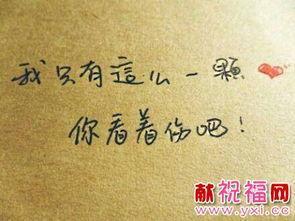 我只有這么一顆
你看着伤吧！
献祝福网
www.yxi.cc